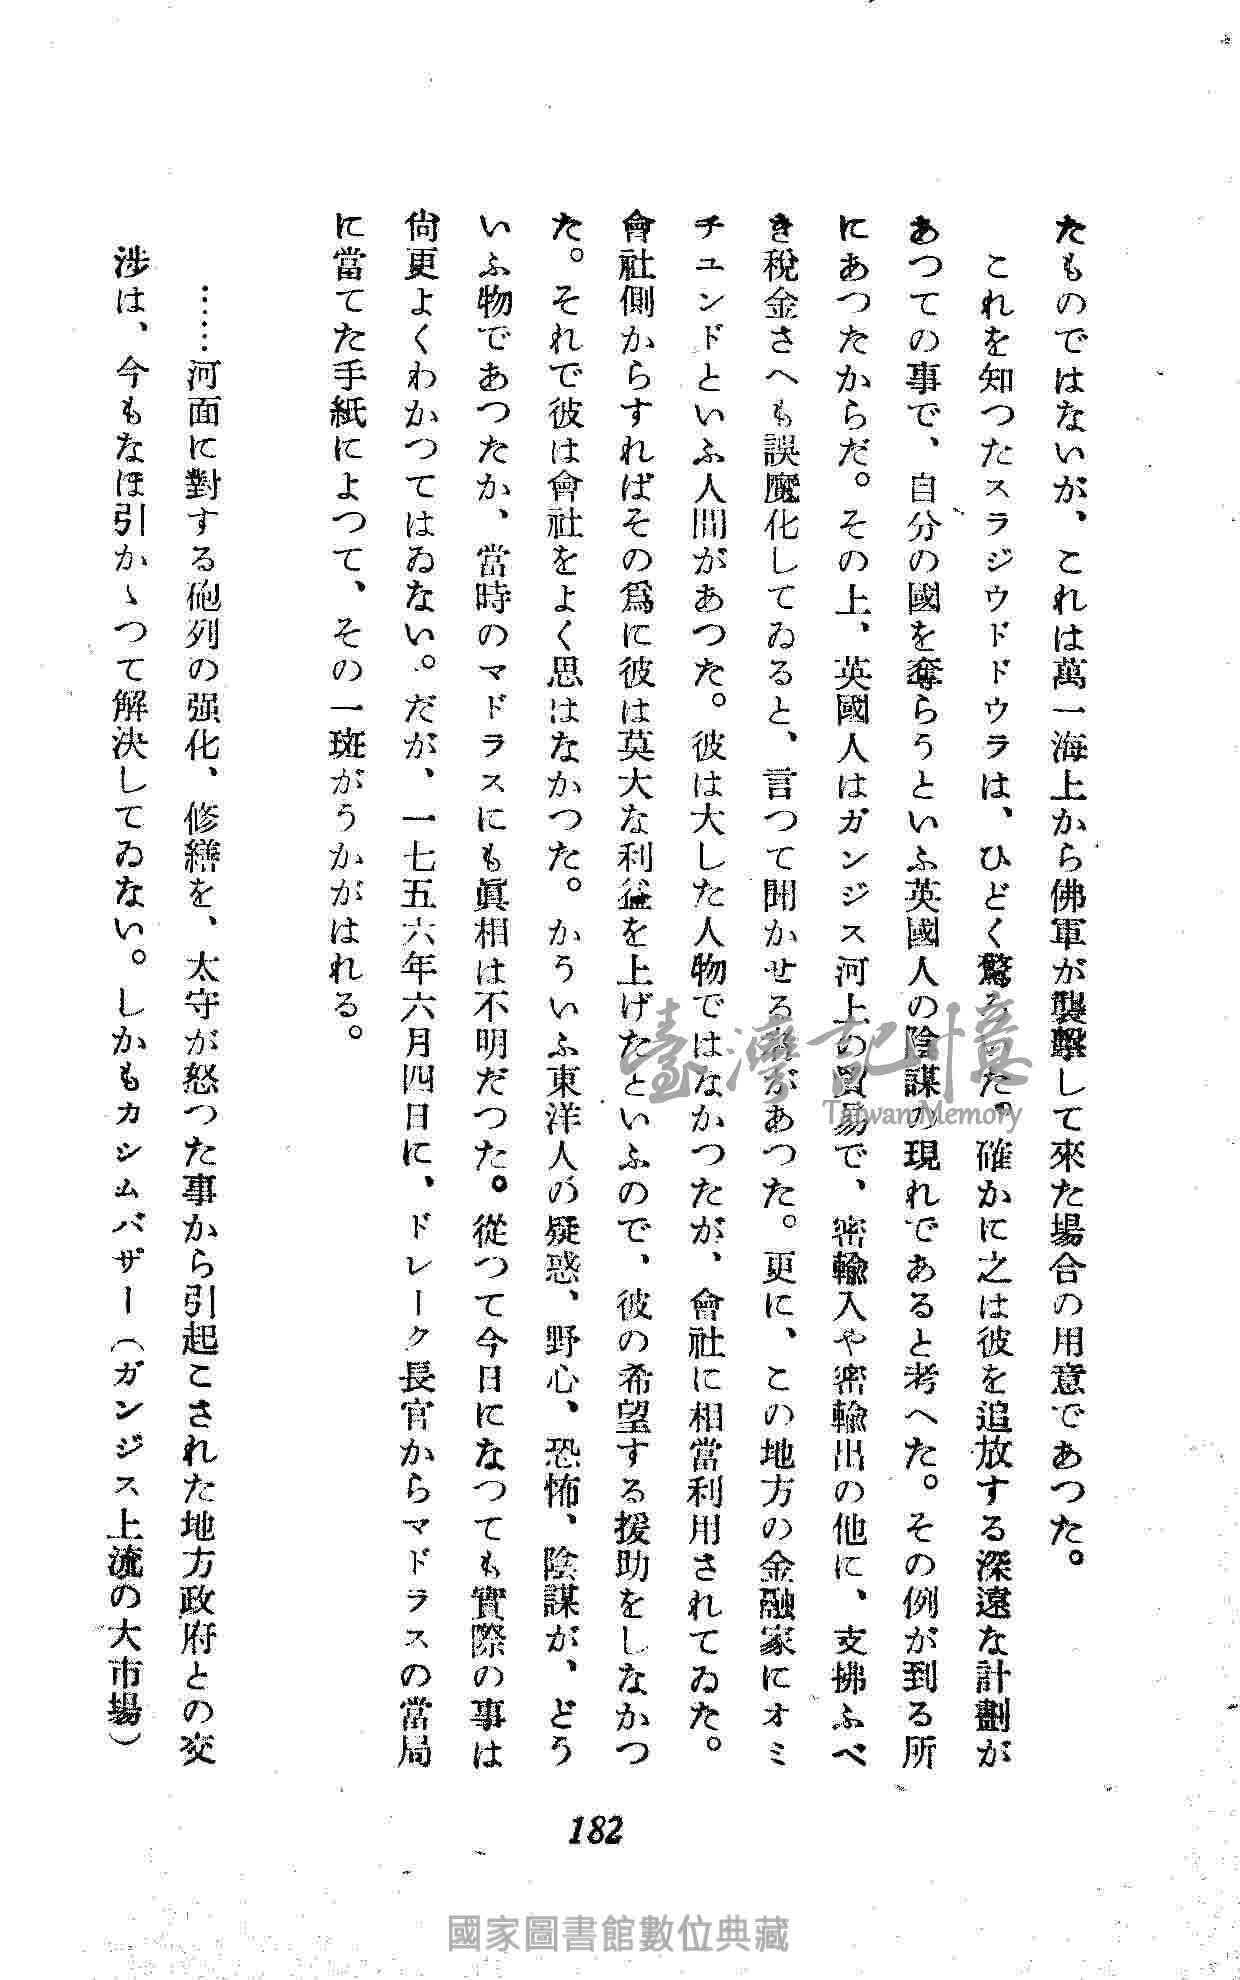 たものではないが、これは萬一海上から佛軍が襲擊して來た場合の用意であつた。
これを知つたスラジウドドウラは、ひどく驚ろいた。確かに之は彼を追放する深遠な計劃が
あつての事で、自分の國を奪らうといふ英國人の陰謀の現れであると考へた。その例が到る所
にあつたからだ。その上、英國人はガンジス河上の貿易で、密輸入や密輸出の他に、支拂ふべ
き稅金さへも誤魔化してゐると、言つて聞かせる者があつた。更に、この地方の金融家にオミ
チユンドといふ人間があつた。彼は大した人物ではなかつたが、會社に相當利用されてゐた。
會社側からすればその爲に彼は莫大な利益を上げたといふので、彼の希望する援助をしなかつ
た。それで彼は會社をよく思はなかつた。かういふ東洋人の疑惑、野心、恐怖、陰謀が、どう
いふ物であつたか、當時のマドラスにも眞相は不明だつた。從つて今日になつても實際の事は
尙更よくわかつてはゐない。だが、一七五六年六月四日に、ドレーク長官からマドラスの當局
に當てた手紙によつて、その一斑がうかがはれる。
……河面に對する砲列の强化、修繕を、太守が怒つた事から引起こされた地方政府との交
涉は、今もなほ引かゝつて解決してゐない。しかもカシムバザー（ガンジス上流の大市場）
182
臺灣記憶
Taiwan Memory
國家圖書館數位典藏